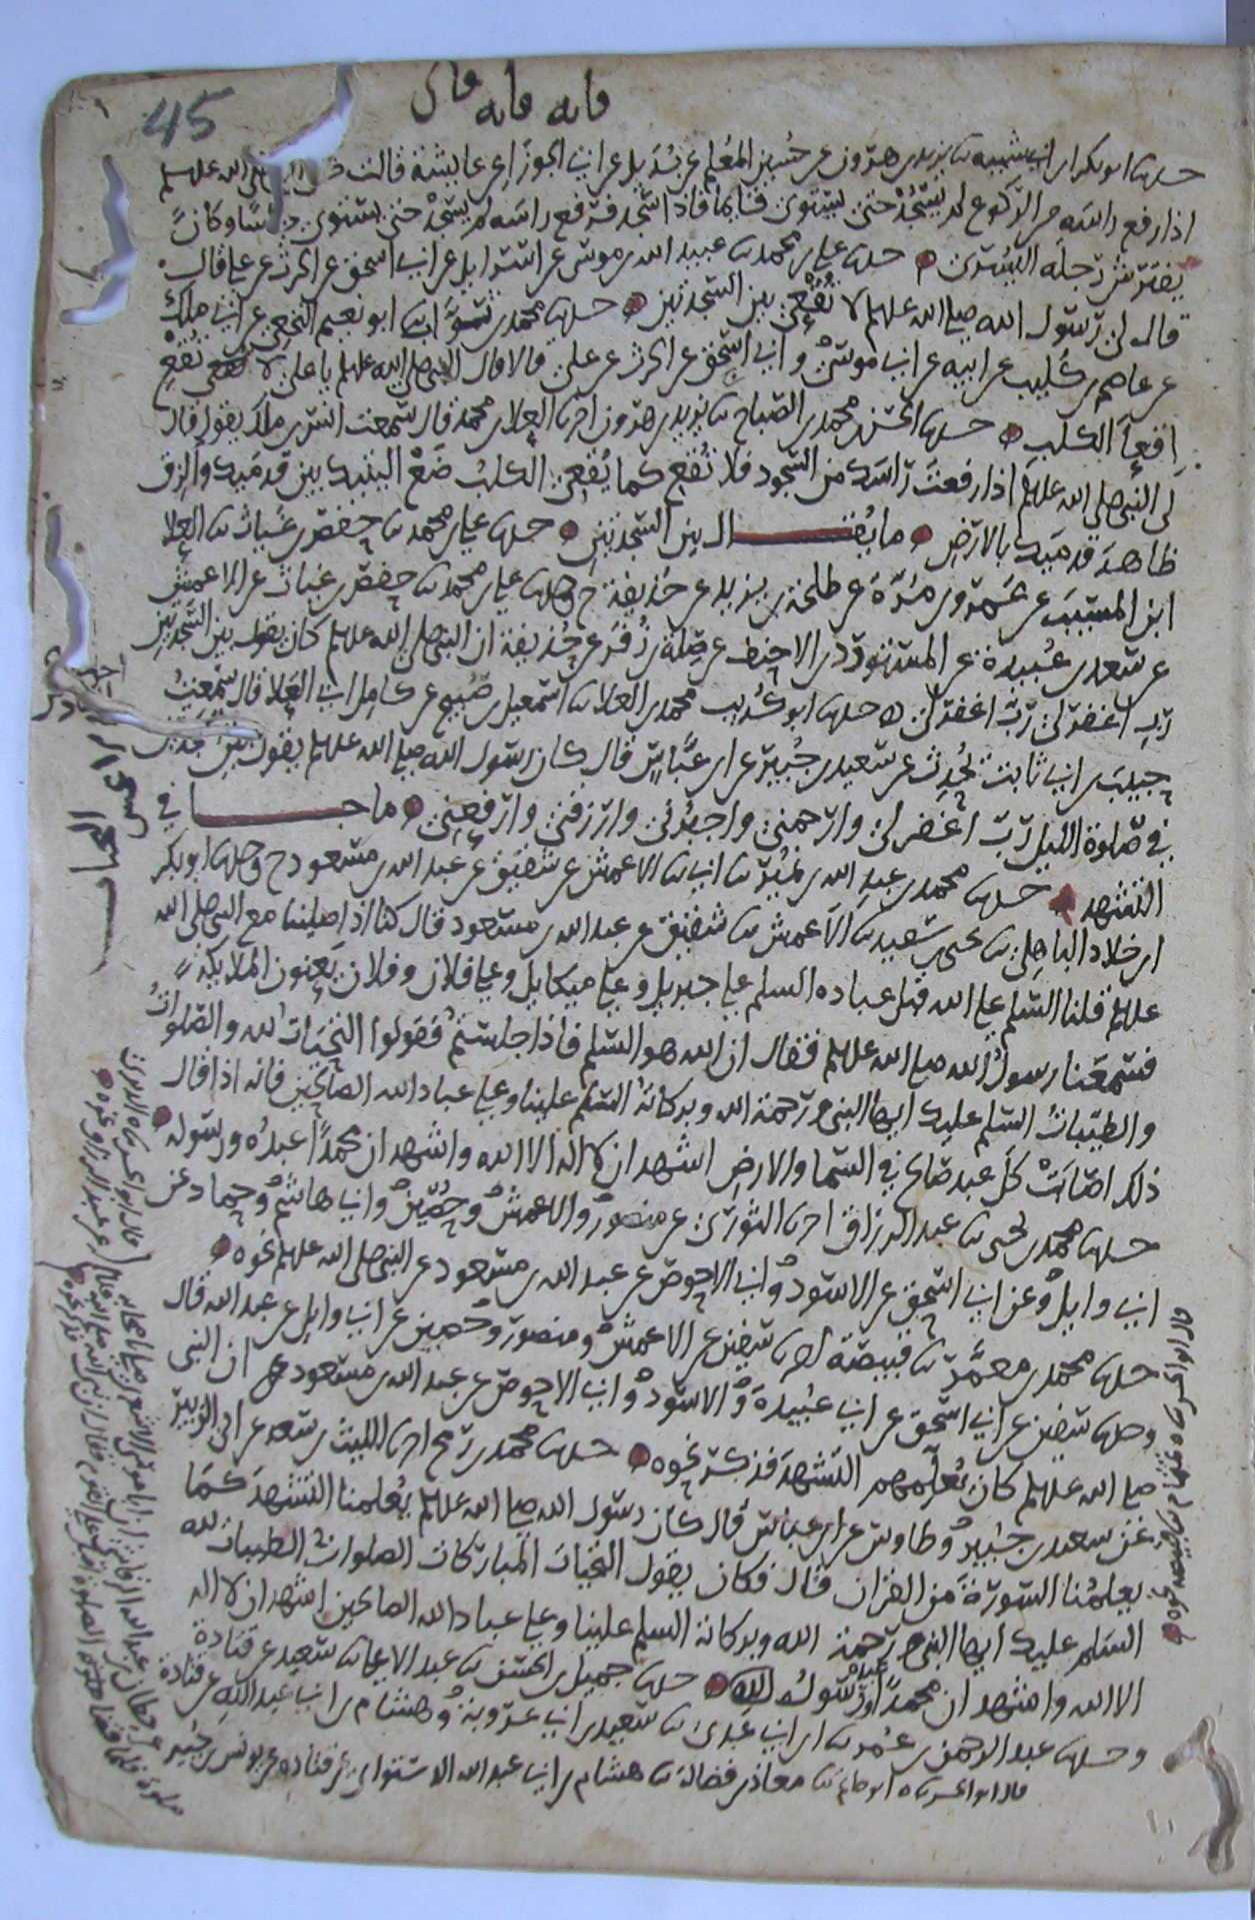 45
مانه مانه مان
حدثنا ابو بكر ابن ابي شيبة ثنا يزيد بن هرون عن حسين المعلم عن بديل عن ابي الجوزا عن عايشة قالت صلى الله عليه وسلم
اذا رفع راسه من الركوع لم يسجد حتى يستوى قايما فاذا سجد فرفع راسه لم يسجد حتى يستوى جالسا وكان
يفترش رجله اليسرى حدثنا علي بن محمد ثنا عبيد الله بن موسى عن اسرايل عن ابي اسحق عن الحرث عن علي قال
قال لي رسول الله صلى الله عليه وسلم لا تقعي بين السجدتين حدثنا محمد بن ثواب ثنا ابو نعيم النخعي عن ابي ملك
عن عاصم بن كليب عن ابيه عن ابي موسى وابي اسحق عن الحرث عن علي قالا قال النبي صلى الله عليه وسلم يا علي لا تقع
اقعا الكلب حدثنا الحسن بن محمد بن الصباح ثنا يزيد بن هرون اخبرنا العلا بن محمد قال سمعت انس بن ملك يقول قال
لي النبي صلى الله عليه وسلم اذا رفعت راسك من السجود فلا تقع كما يقعي الكلب ضع اليتيك بين قدميك والزق
ظاهر قدميك بالارض ما يقال بين السجدتين حدثنا علي بن محمد ثنا حفص بن غياث ثنا العلا
ابن المسيب عن عمرو بن مرة عن طلحة بن يزيد عن حذيفة ح وحدثنا علي بن محمد ثنا حفص بن غياث عن الاعمش
عن سعد بن عبيدة عن المستورد بن الاحنف عن صلة بن زفر عن حذيفة ان النبي صلى الله عليه وسلم كان يقول بين السجدتين
رب اغفر لي رب اغفر لي حدثنا ابو كريب محمد بن العلا ثنا اسمعيل بن صبيح عن كامل ابي العلا قال سمعت
حبيب بن ابي ثابت يحدث عن سعيد بن جبير عن ابن عباس قال كان رسول الله صلى الله عليه وسلم يقول بين
في صلوة الليل رب اغفر لي وارحمني واجبرني وارزقني وارفعني ما جا في
التشهد حدثنا محمد بن عبد الله بن نمير ثنا ابي ثنا الاعمش عن شقيق عن عبد الله بن مسعود ح وحدثنا ابو بكر
ابن خلاد الباهلي ثنا يحيى بن سعيد ثنا الاعمش ثنا شقيق عن عبد الله بن مسعود قال كنا اذا صلينا مع النبي صلى الله
عليه وسلم قلنا السلم على الله قبل عباده السلم على جبريل وعلى ميكايل وعلى فلان وفلان يعنون الملايكة
فسمعنا رسول الله صلى الله عليه وسلم فقال ان الله هو السلم فاذا جلستم فقولوا التحيات لله والصلوات
والطيبات السلم عليك ايها النبي ورحمة الله وبركاته السلم علينا وعلى عباد الله الصالحين فانه اذا قال
ذلك اصابت كل عبد صالح في السما والارض اشهد ان لا اله الا الله واشهد ان محمدا عبده ورسوله
حدثنا محمد بن يحيى ثنا عبد الرزاق اخبرنا الثوري عن منصور والاعمش وحصين وابي هاشم وحماد عن
ابي وايل وعن ابي اسحق عن الاسود وابي الاحوص عن عبد الله بن مسعود عن النبي صلى الله عليه وسلم نحوه
حدثنا محمد بن معمر ثنا قبيصة اخبرنا سفين عن الاعمش ومنصور وحصين عن ابي وايل عن عبد الله قال
وحدثنا سفين عن ابي اسحق عن ابي عبيدة والاسود وابي الاحوص عن عبد الله بن مسعود ان النبي
صلى الله عليه وسلم كان يعلمهم التشهد فذكر نحوه حدثنا محمد بن رمح اخبرنا الليث بن سعد عن ابي الزبير
عن سعيد بن جبير وطاوس عن ابن عباس قال كان رسول الله صلى الله عليه وسلم يعلمنا التشهد كما
يعلمنا السورة من القران قال فكان يقول التحيات المباركات الصلوات الطيبات لله
السلم عليك ايها النبي ورحمة الله وبركاته السلم علينا وعلى عباد الله الصالحين اشهد ان لا اله
الا الله واشهد ان محمدا عبده ورسوله حدثنا جميل بن الحسن ثنا عبد الاعلى ثنا سعيد عن قتادة
وحدثنا عبد الرحمن بن عمر ثنا ابن ابي عدي ثنا سعيد بن ابي عروبة وهشام بن ابي عبد الله عن قتادة
قال ابو الحسن ثناه ابو حاتم ثنا معاذ بن فضالة ثنا هشام بن ابي عبد الله الدستواي عن قتادة عن يونس بن جبير
عن حطان بن عبد الله الرقاشي
قال ابو الحسن